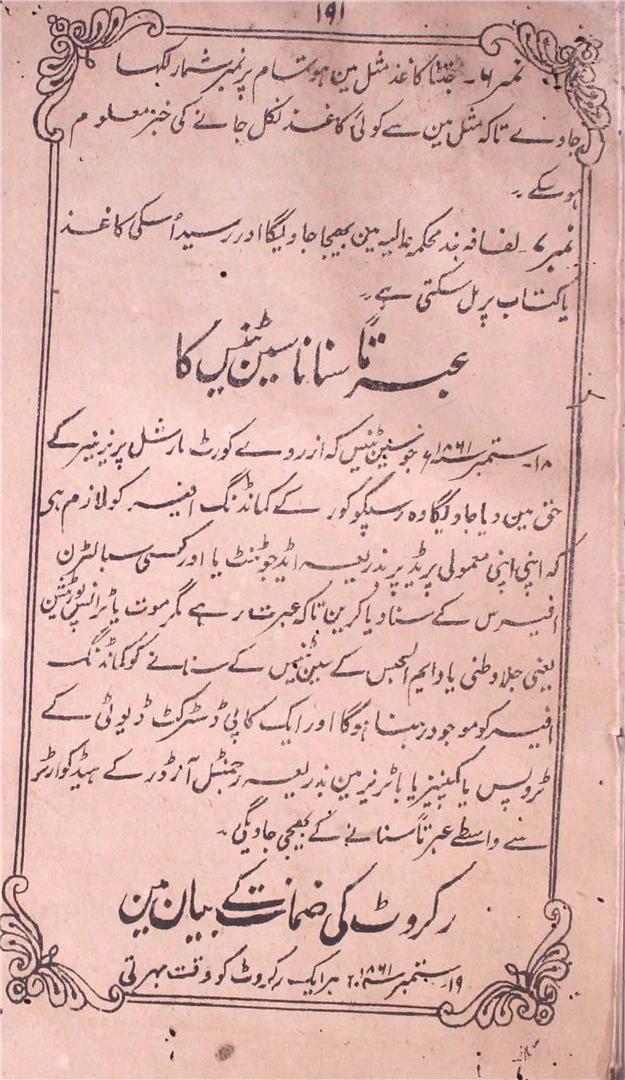 ۱۹۱
نمبر ۶۔ جتنا کاغذ مثل مین ہو تمام پر نمبر شمار لکہا
جاوے تاکہ مثل مین سے کوئی کاغذ نکل جانے کی خبر معلوم
ہو سکے ۔
نمبر ۷۔ لفافہ بند محکمہ عالیہ مین بھیجا جاویگا اور رسید اُسکی کاغذ
یا کتاب پر مل سکتی ہے۔
عبرتاً سنانا سین ٹنس کا
۱۸۔ ستمبر ۱۸۶۱ء جو سین ٹنس کہ ازروے کورٹ مارشل پریزنیر کے
حق مین دیا جاویگا وہ کور کے کمانڈنگ افیسر کو لازم ہی
کہ اپنی اپنی معمولی پریڈ پر بذریعہ ایڈجوٹنٹ یا اور کسی سبالٹرن
افیسرس کے سنا دیا کرین تاکہ عبرت رہے مگر موت یا ٹرانس پورٹیشن
یعنی جلاوطنی یا دایم الحبس کے سین ٹنس کے سنانے کو کمانڈنگ
افیسر کو موجود رہنا ہوگا اور ایک کاپی ڈسٹرکٹ ڈیوٹی کے
ٹروپس یا کمپنیز یا باٹریز مین بذریعہ رجمنٹل آرڈر کے ہیڈ کوارٹر
سے واسطے عبرتاً سنانے کے بھیجی جاویگی ۔
رکروٹ کی ضمانت کے بیان مین
۱۹۔ ستمبر ۱۸۶۱ء ہر ایک رکروٹ کو وقت بہرتی